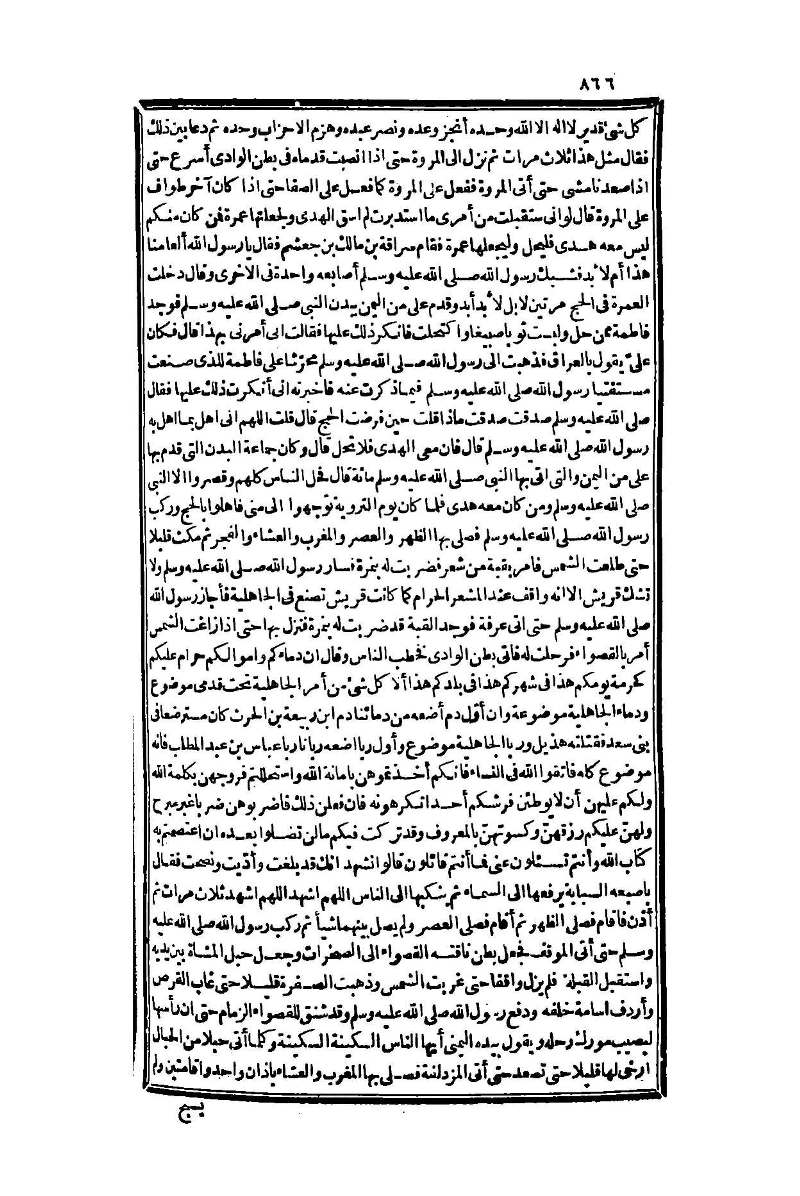 ٨٦٦
كل شئ قدير لا اله الا الله وحده أنجز وعده ونصر عبده وهزم الاحزاب وحده ثم دعا بين ذلك
فقال مثل هذا ثلاث مرات ثم نزل الى المروة حتى اذا انصبت قدماه فى بطن الوادى أسرع حتى
اذا صعدنا مشى حتى أتى المروة ففعل على المروة كما فعل على الصفا حتى اذا كان آخر طواف
على المروة قال لو انى ستقبلت من أمرى ما استدبرت لم اسق الهدى ولجعلتها عمرة فمن كان منكم
ليس معه هدى فليحل وليجعلها عمرة فقام سراقة بن مالك بن جعشم فقال يا رسول الله ألعامنا
هذا أم لأبد فشبك رسول الله صلى الله عليه وسلم أصابعه واحدة فى الاخرى وقال دخلت
العمرة فى الحج مرتين لا بل لأبد أبد وقدم على من اليمن ببدن النبى صلى الله عليه وسلم فوجد
فاطمة ممن حل ولبست ثوبا صبيغا واكتحلت فانكر ذلك عليها فقالت انى أمرنى بهذا قال فكان
علىّ يقول بالعراق فذهبت الى رسول الله صلى الله عليه وسلم محرّشا على فاطمة للذى صنعت
مستفتيا رسول الله صلى الله عليه وسلم فيما ذكرت عنه فاخبرته انى أنكرت ذلك عليها فقال
صلى الله عليه وسلم صدقت صدقت ماذا قلت حين فرضت الحج قال قلت اللهم انى اهل بما اهل به
رسول الله صلى الله عليه وسلم قال فان معى الهدى فلا تحل قال وكان جماعة البدن التى قدم بها
على من اليمن والتى اتى بها النبى صلى الله عليه وسلم مائة قال فحل الناس كلهم وقصروا الا النبى
صلى الله عليه وسلم ومن كان معه هدى فلما كان يوم التروية توجهوا الى منى فاهلوا بالحج وركب
رسول الله صلى الله عليه وسلم فصلى بها الظهر والعصر والمغرب والعشاء والفجر ثم مكث قليلا
حتى طلعت الشمس فامر بقبة من شعر فضربت له بنمرة فسار رسول الله صلى الله عليه وسلم ولا
تشك قريش الا انه واقف عند المشعر الحرام كما كانت قريش تصنع فى الجاهلية فأجاز رسول الله
صلى الله عليه وسلم حتى اتى عرفة فوجد القبة قد ضربت له بنمرة فنزل بها حتى اذا زاغت الشمس
أمر بالقصواء فرحلت له فاتى بطن الوادى فخطب الناس وقال ان دماءكم واموالكم حرام عليكم
كحرمة يومكم هذا فى شهركم هذا فى بلدكم هذا ألا كل شئ من أمر الجاهلية تحت قدمى موضوع
ودماء الجاهلية موضوعة وان أول دم أضعه من دمائنا دم ابن ربيعة بن الحرث كان مسترضعا فى
بنى سعد فقتلته هذيل وربا الجاهلية موضوع وأول ربا اضعه ربانا ربا عباس بن عبد المطلب فانه
موضوع كله فاتقوا الله فى النساء فانكم أخذتموهن بامانة الله واستحللتم فروجهن بكلمة الله
ولكم عليهن أن لا يوطئن فرشكم أحدا تكرهونه فان فعلن ذلك فاضربوهن ضربا غير مبرح
ولهنّ عليكم رزقهنّ وكسوتهنّ بالمعروف وقد تركت فيكم مالن تضلوا بعده ان اعتصمتم به
كتاب الله وأنتم تسئلون عنى فما أنتم قائلون قالوا نشهد انك قد بلغت وأدّيت ونصحت فقال
باصبعه السبابة يرفعها الى السماء ثم ينكبها الى الناس اللهم اشهد اللهم اشهد ثلاث مرات ثم
أذن فاقام فصلى الظهر ثم أقام فصلى العصر ولم يصل بينهما شيأ ثم ركب رسول الله صلى الله عليه
وسلم حتى أتى الموقف فجعل بطن ناقته القصواء الى الصخرات وجعل حبل المشاة بين يديه
واستقبل القبلة فلم يزل واقفا حتى غربت الشمس وذهبت الصفرة قليلا حتى غاب القرص
وأردف اسامة خلفه ودفع رسول الله صلى الله عليه وسلم وقد شنق للقصواء الزمام حتى ان رأسها
ليصيب مورك رحله ويقول بيده اليمنى أيها الناس السكينة السكينة وكلما أتى حبلا من الحبال
ارخى لها قليلا حتى تصعد حتى أتى المزدلفة فصلى بها المغرب والعشاء باذان واحد واقامتين ولم
يسبح